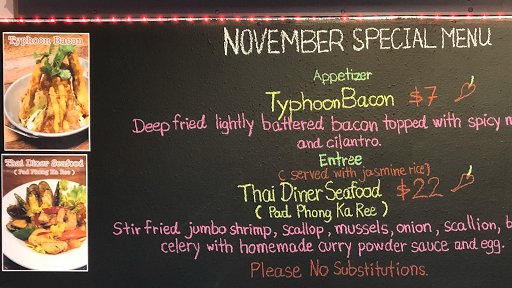 Typhoon Bacon
NOVEMBER SPECIAL MENU
Appetizer
Typhoon Bacon $7
Deep fried lightly battered bacon topped with spicy
and cilantro.
Entree
( served with jasmine rice)
Thai Diner Seafood $22
( Pad Phong Ka Ree )
Stir fried jumbo shrimp, scallop, mussels, onion, scallion,
celery with homemade curry powder sauce and egg.
Please No Substitutions.
Thai Diner Seafood
( Pad Phong Ka Ree )